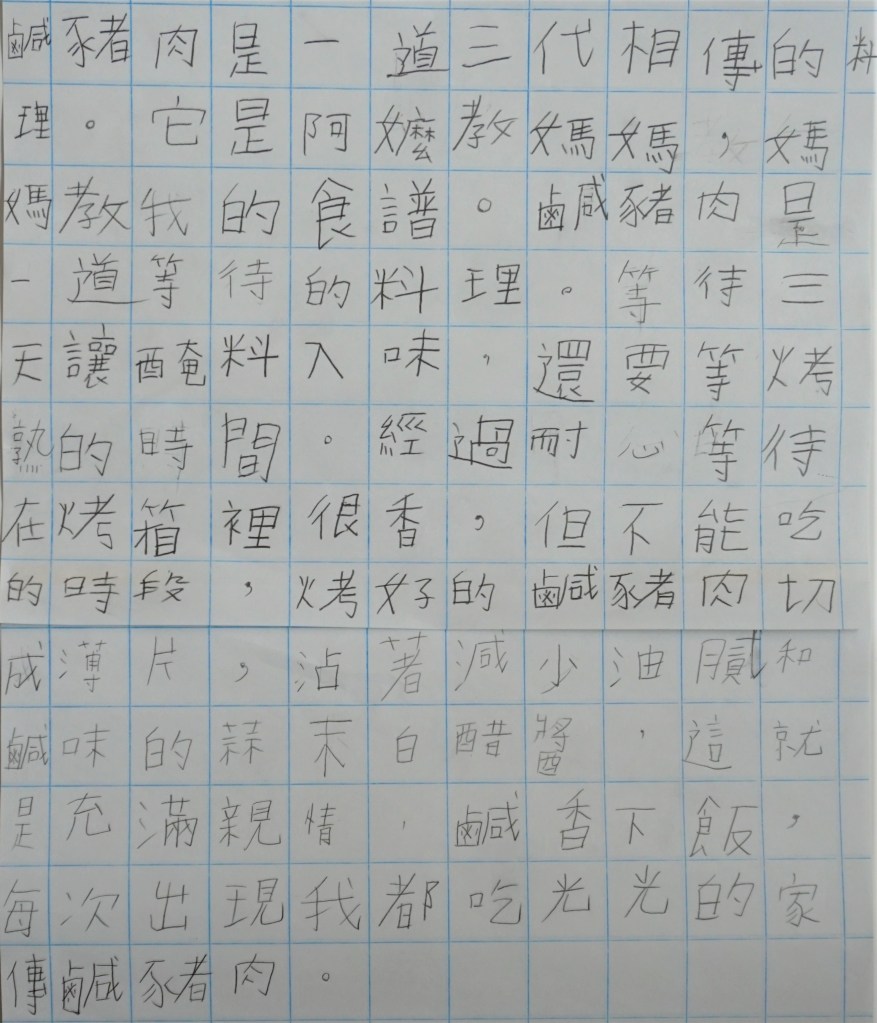 鹹豬肉是一道三代相傳的料
理。它是阿嬤教媽媽，媽
媽教我的食譜。鹹豬肉是
一道等待的料理。等待三
天讓醃料入味，還要等烤
熟的時間。經過耐心等待
在烤箱裡很香，但不能吃
的時段，烤好的鹹豬肉切
成薄片，沾著減少油膩和
鹹味的蒜末白醋醬，這就
是充滿親情，鹹香下飯，
每次出現我都吃光光的家
傳鹹豬肉。